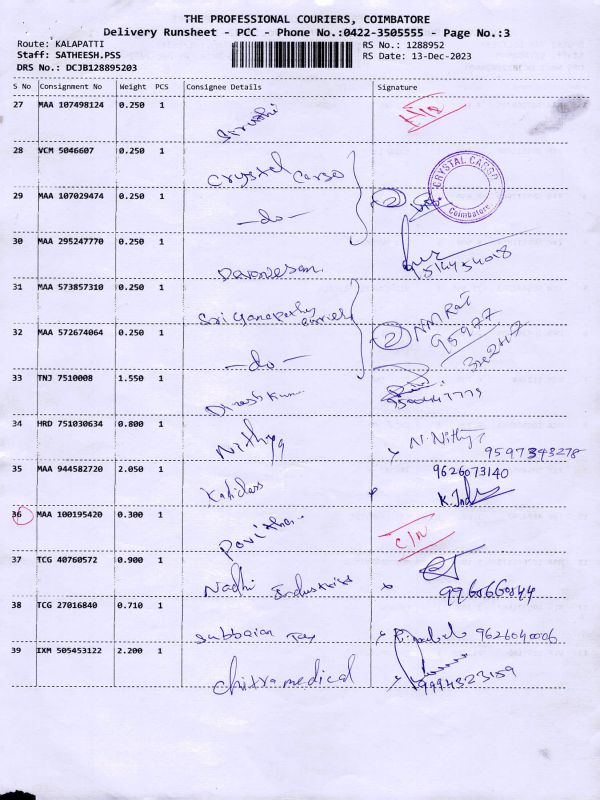 THE PROFESSIONAL COURIERS, COIMBATORE
Delivery Runsheet - PCC - Phone No.:0422-3505555 - Page No.:3
Route: KALAPATTI
RS No.: 1288952
Staff: SATHEESH.PSS
RS Date: 13-Dec-2023
DRS No.: DCJB128895203
S No Consignment No Weight PCS Consignee Details Signature
27 MAA 107498124 0.250 1
28 VCM 5046607 0.250 1 Crystel Cargo
CRYSTAL CARGO
Coimbatore
29 MAA 107029474 0.250 1 -do- 2
30 MAA 295247770 0.250 1
31 MAA 573857310 0.250 1 Sri Ganapathy
32 MAA 572674064 0.250 1 -do- 2
33 TNJ 7510008 1.550 1
34 HRD 751030634 0.800 1 Nithya N. Nithya
9597343278
35 MAA 944582720 2.050 1 9626073140
36 MAA 100195420 0.300 1 C/N
37 TCG 40760572 0.900 1 Nadhi Industries
38 TCG 27016840 0.710 1 9626040006
39 IXM 505453122 2.200 1 Chitra medical 9994323159